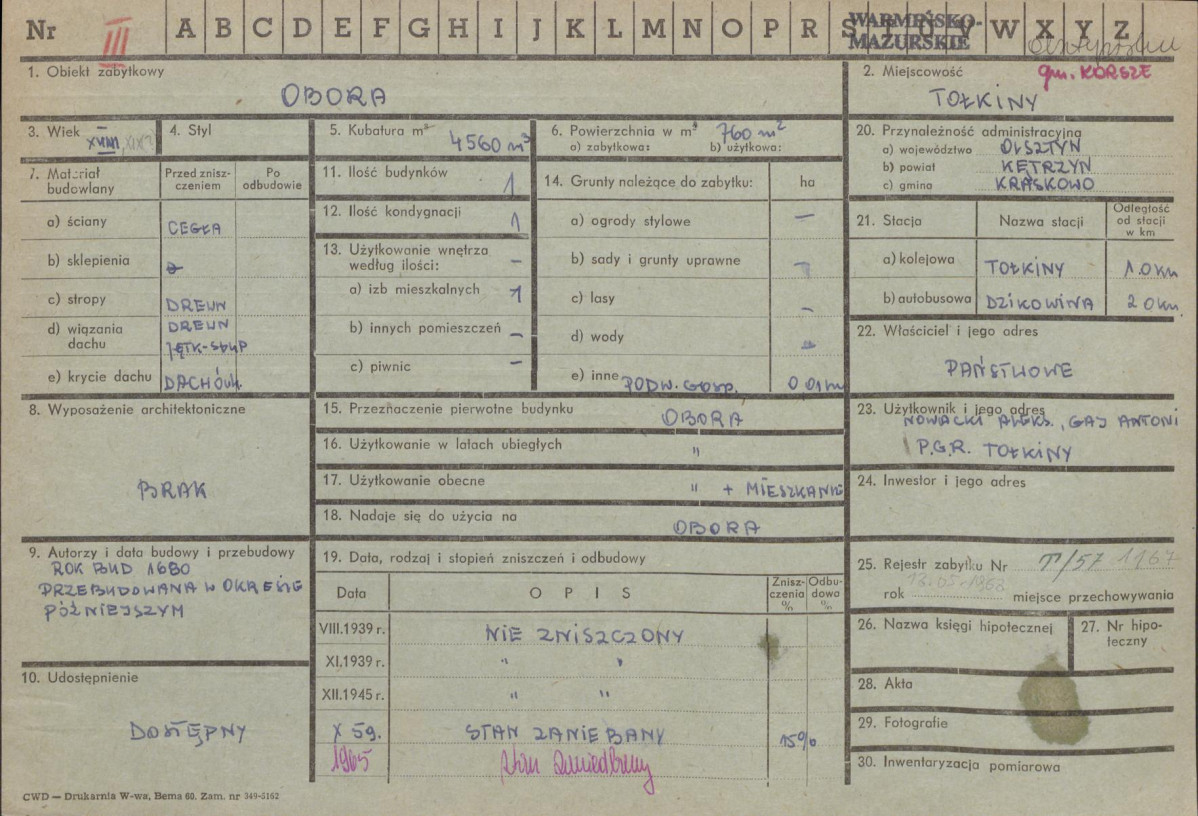 Nr III A B C D E F G H I J K L M N O P R S T U V W X Y Z
WARMIŃSKO-
MAZURSKIE
1. Obiekt zabytkowy
OBORA
2. Miejscowość
gm. KORSZE
TOŁKINY
3. Wiek
XVIII, XIX?
4. Styl
5. Kubatura m³
4560 m³
6. Powierzchnia w m²
760 m²
a) zabytkowa: b) użytkowa:
20. Przynależność administracyjna
a) województwo OLSZTYN
b) powiat KĘTRZYN
c) gmina KRASKOWO
7. Materiał
budowlany
Przed znisz-
czeniem
Po
odbudowie
a) ściany CEGŁA
b) sklepienia
c) stropy DREWN
d) wiązania
dachu
DREWN
JĘTK-SŁUP
e) krycie dachu DACHÓWK.
11. Ilość budynków 1
12. Ilość kondygnacji 1
13. Użytkowanie wnętrza
według ilości: –
a) izb mieszkalnych 1
b) innych pomieszczeń –
c) piwnic –
14. Grunty należące do zabytku: ha
a) ogrody stylowe –
b) sady i grunty uprawne –
c) lasy –
d) wody –
e) inne PODW. GOSP. 0,01 ha
21. Stacja
Nazwa stacji
Odległość
od stacji
w km
a) kolejowa TOŁKINY 1.0 km
b) autobusowa DZIKOWINA 2.0 km
22. Właściciel i jego adres
PAŃSTWOWE
8. Wyposażenie architektoniczne
BRAK
15. Przeznaczenie pierwotne budynku OBORA
16. Użytkowanie w latach ubiegłych "
17. Użytkowanie obecne " + MIESZKANIE
18. Nadaje się do użycia na OBORA
23. Użytkownik i jego adres
NOWACKI ALEKS., GAJ ANTONI
P.G.R. TOŁKINY
24. Inwestor i jego adres
9. Autorzy i data budowy i przebudowy
ROK BUD 1680
PRZEBUDOWANA W OKRESIE
PÓŹNIEJSZYM
19. Data, rodzaj i stopień zniszczeń i odbudowy
Data
O P I S
Znisz-
czenia
%
Odbu-
dowa
%
VIII.1939 r. NIE ZNISZCZONY
XI.1939 r. " "
XII.1945 r. " "
X 59. STAN ZANIEDBANY 15%
1965 stan zaniedbany
25. Rejestr zabytku Nr
rok miejsce przechowywania
26. Nazwa księgi hipotecznej
27. Nr hipo-
teczny
10. Udostępnienie
DOSTĘPNY
28. Akta
29. Fotografie
30. Inwentaryzacja pomiarowa
CWD — Drukarnia W-wa, Bema 60. Zam. nr 349-5162